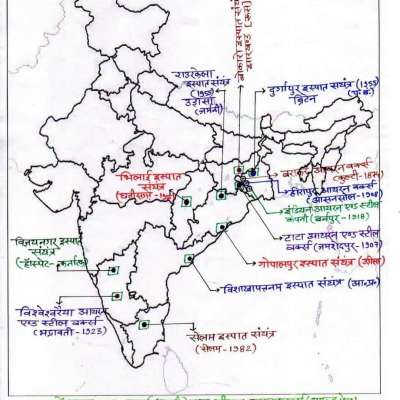 बोकारो इस्पात संयंत्र
झारखण्ड (रूस)
राउरकेला
इस्पात संयंत्र
(1959)
उड़ीसा
(जर्मनी)
दुर्गापुर इस्पात संयंत्र (1959)
ब्रिटेन (प. बं.)
भिलाई इस्पात
संयंत्र
(छत्तीसगढ़
आयरन वर्क्स
(कुल्टी-1874)
हीरापुर आयरन वर्क्स
(आसनसोल-1908)
इंडियन आयरन एण्ड स्टील
कंपनी (बर्नपुर-1918)
टाटा आयरन एण्ड स्टील
वर्क्स (जमशेदपुर-1907)
गोपालपुर इस्पात संयंत्र
विशाखापत्तनम इस्पात संयंत्र (आ.प्र.)
विजयनगर इस्पात
संयंत्र
(हॉस्पेट-कर्नाटक)
विश्वेश्वरैया आयरन
एण्ड स्टील वर्क्स
(भद्रावती-1923)
सेलम इस्पात संयंत्र
(सेलम-1982)